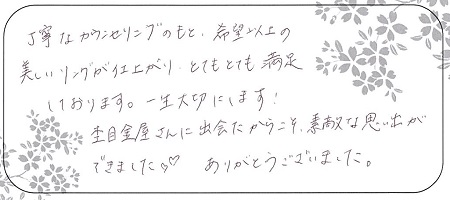 丁寧なカウンセリングのもと、希望以上の
美しいリングが仕上がり、とてもとても満足
しております。一生大切にします!
杢目金屋さんに出会たからこそ、素敵な思い出が
できました♡♡ ありがとうございました。